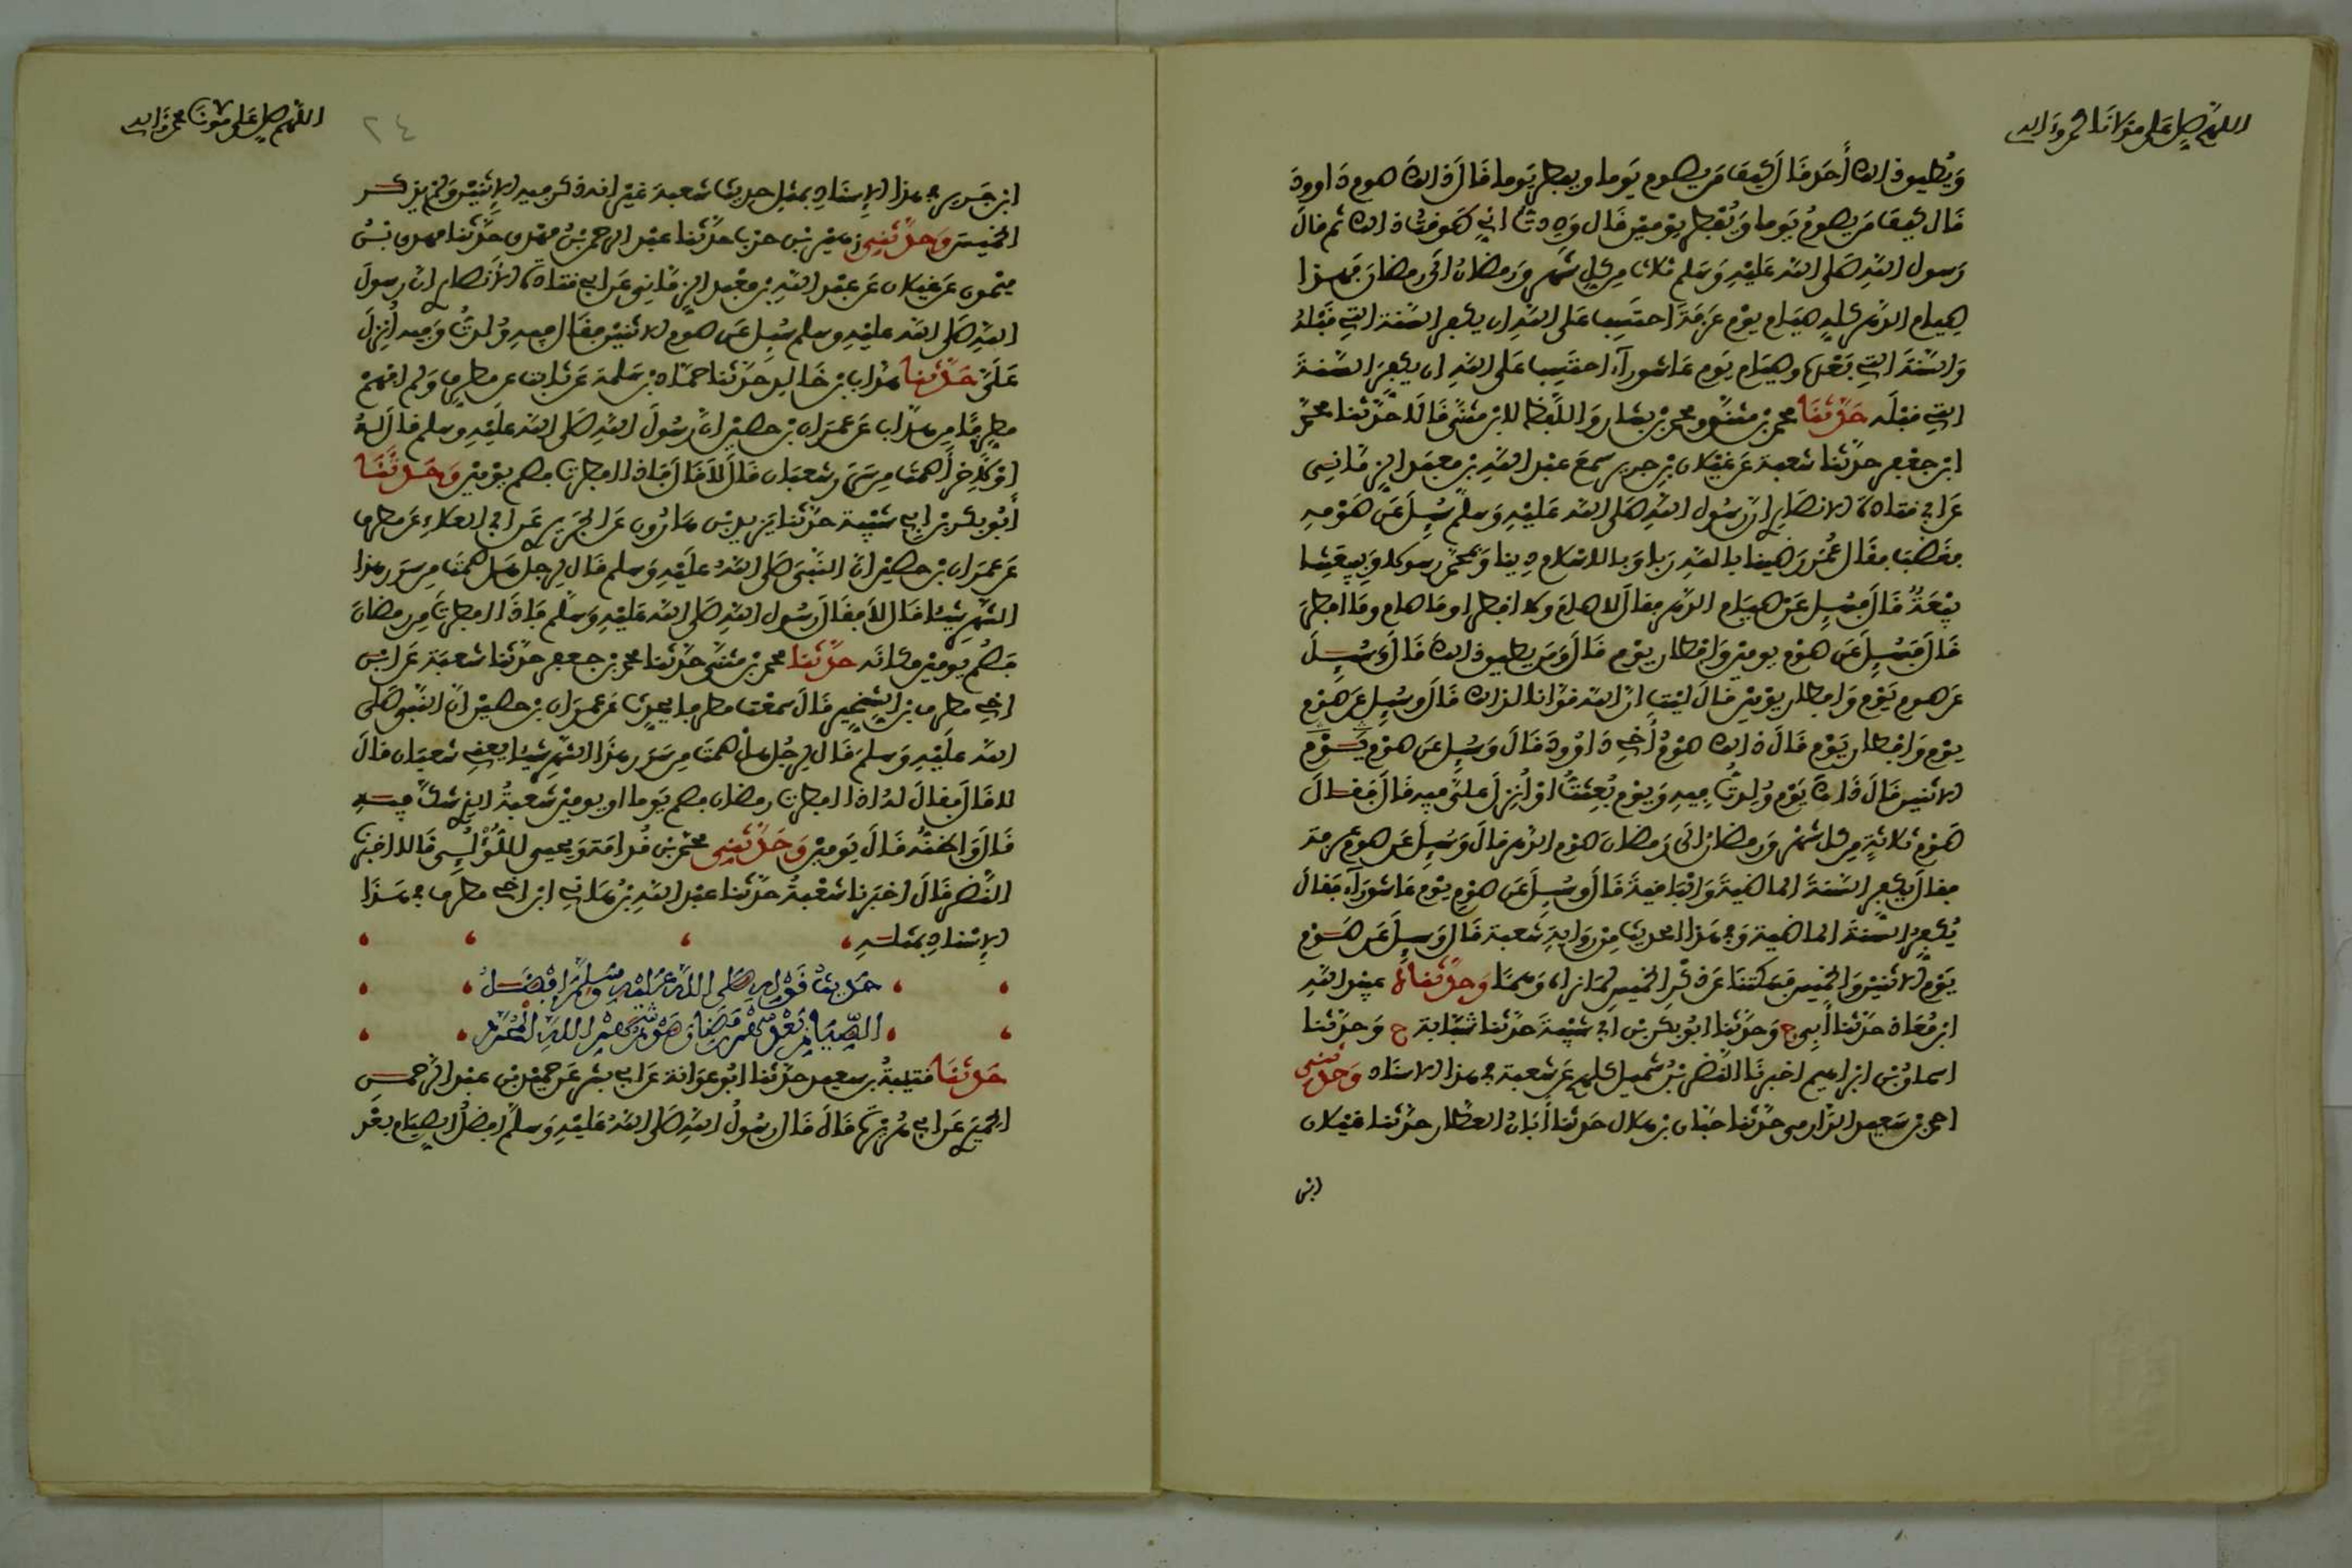 اللهم صل على مولانا محمد وآله
ويطيق ذلك أحد قال كيف من يصوم يوما ويفطر يوما قال ذلك صوم داوود
قال كيف من يصوم يوما ويفطر يومين قال وددت اني طوقت ذلك ثم قال
رسول الله صلى الله عليه وسلم ثلاث من كل شهر ورمضان الى رمضان فهذا
صيام الدهر كله صيام يوم عرفة احتسب على الله ان يكفر السنة التي قبله
والسنة التي بعدها وصيام يوم عاشوراء احتسب على الله ان يكفر السنة
التي قبله حدثنا محمد بن مثنى ومحمد بن بشار واللفظ لابن مثنى قالا حدثنا محمد
ابن جعفر حدثنا شعبة عن غيلان بن جرير سمع عبد الله بن معبد الزماني
عن ابي قتادة الانصاري ان رسول الله صلى الله عليه وسلم سئل عن صومه
فغضب فقال عمر رضينا بالله ربا وبالاسلام دينا وبمحمد رسولا وببيعتنا
بيعة قال فسئل عن صيام الدهر فقال لا صام ولا افطر او ما صام وما افطر
قال فسئل عن صوم يومين وافطار يوم قال ومن يطيق ذلك قال وسئل
عن صوم يوم وافطار يومين قال ليت ان الله قوانا لذلك قال وسئل عن صوم
يوم وافطار يوم قال ذلك صوم أخي داوود قال وسئل عن صوم يوم
الاثنين قال ذاك يوم ولدت فيه ويوم بعثت او أنزل علي فيه قال فقال
صوم ثلاثة من كل شهر ورمضان الى رمضان صوم الدهر قال وسئل عن صوم عرفة
فقال يكفر السنة الماضية والباقية قال وسئل عن صوم يوم عاشوراء فقال
يكفر السنة الماضية وفي هذا الحديث من رواية شعبة قال وسئل عن صوم
يوم الاثنين والخميس فسكتنا عن ذكر الخميس لما نراه وهما وحدثناه عبيد الله
ابن معاذ حدثنا أبي ح وحدثنا ابو بكر بن ابي شيبة حدثنا شبابة ح وحدثنا
اسحاق بن ابراهيم اخبرنا النضر بن شميل كلهم عن شعبة في هذا الاسناد وحدثني
احمد بن سعيد الدارمي حدثنا حبان بن هلال حدثنا أبان العطار حدثنا غيلان
ابن
اللهم صل على مولانا محمد وآله
٢٤
ابن جرير في هذا الإسناد بمثل حديث شعبة غير انه ذكر فيه الإثنين ولم يذكر
الخميس وحدثني زهير بن حرب حدثنا عبد الرحمن بن مهدي حدثنا مهدي بن
ميمون عن غيلان عن عبد الله بن معبد الزماني عن ابي قتادة الأنصاري ان رسول
الله صلى الله عليه وسلم سئل عن صوم الاثنين فقال فيه ولدت وفيه أنزل
علي حدثنا هداب بن خالد حدثنا حماد بن سلمة عن ثابت عن مطرف ولم افهم
مطرفا من هداب عن عمران بن حصين ان رسول الله صلى الله عليه وسلم قال له
او لآخر أصمت من سرر شعبان قال لا قال فاذا افطرت فصم يومين وحدثنا
أبو بكر بن ابي شيبة حدثنا يزيد بن هارون عن الجريري عن ابي العلاء عن مطرف
عن عمران بن حصين ان النبي صلى الله عليه وسلم قال لرجل هل صمت من سرر هذا
الشهر شيئا قال لا فقال رسول الله صلى الله عليه وسلم فاذا افطرت من رمضان
فصم يومين مكانه حدثنا محمد بن مثنى حدثنا محمد بن جعفر حدثنا شعبة عن ابن
اخي مطرف بن الشخير قال سمعت مطرفا يحدث عن عمران بن حصين ان النبي صلى
الله عليه وسلم قال لرجل هل صمت من سرر هذا الشهر شيئا يعني شعبان قال
لا قال فقال له اذا افطرت رمضان فصم يوما او يومين شعبة الذي شك فيه
قال واظنه قال يومين وحدثني محمد بن قدامة ويحيى اللؤلئي قالا اخبرنا
النضر قال اخبرنا شعبة حدثنا عبد الله بن هانئ ابن اخي مطرف في هذا
الإسناد بمثله
حديث قوله صلى الله عليه وسلم افضل
الصيام بعد شهر رمضان صوم شهر الله المحرم
حدثنا قتيبة بن سعيد حدثنا ابو عوانة عن ابي بشر عن حميد بن عبد الرحمن
الحميري عن ابي هريرة قال قال رسول الله صلى الله عليه وسلم افضل الصيام بعد